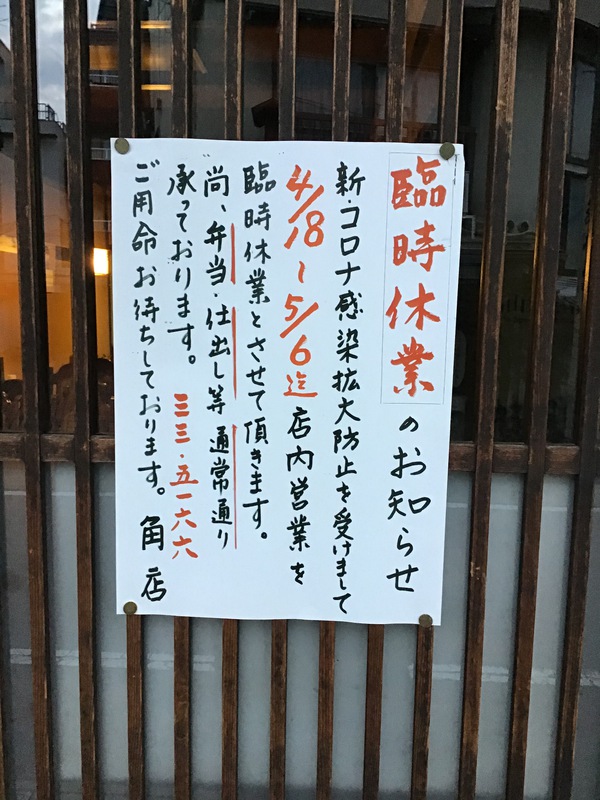 臨時休業のお知らせ
新・コロナ感染拡大防止を受けまして
4/18〜5/6迄店内営業を
臨時休業とさせて頂きます。
尚、弁当・仕出し等通常通り
承っております。三三・五一六六
ご用命お待ちしております。角店